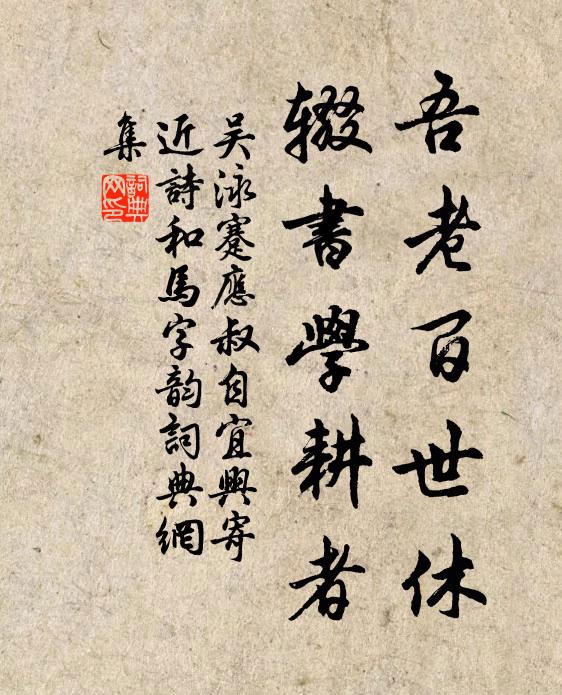 吾老百世休
辍書學耕者
吴泳蹇應叔自宜興寄
近詩和馬字韵詞典網
集
詞典网印